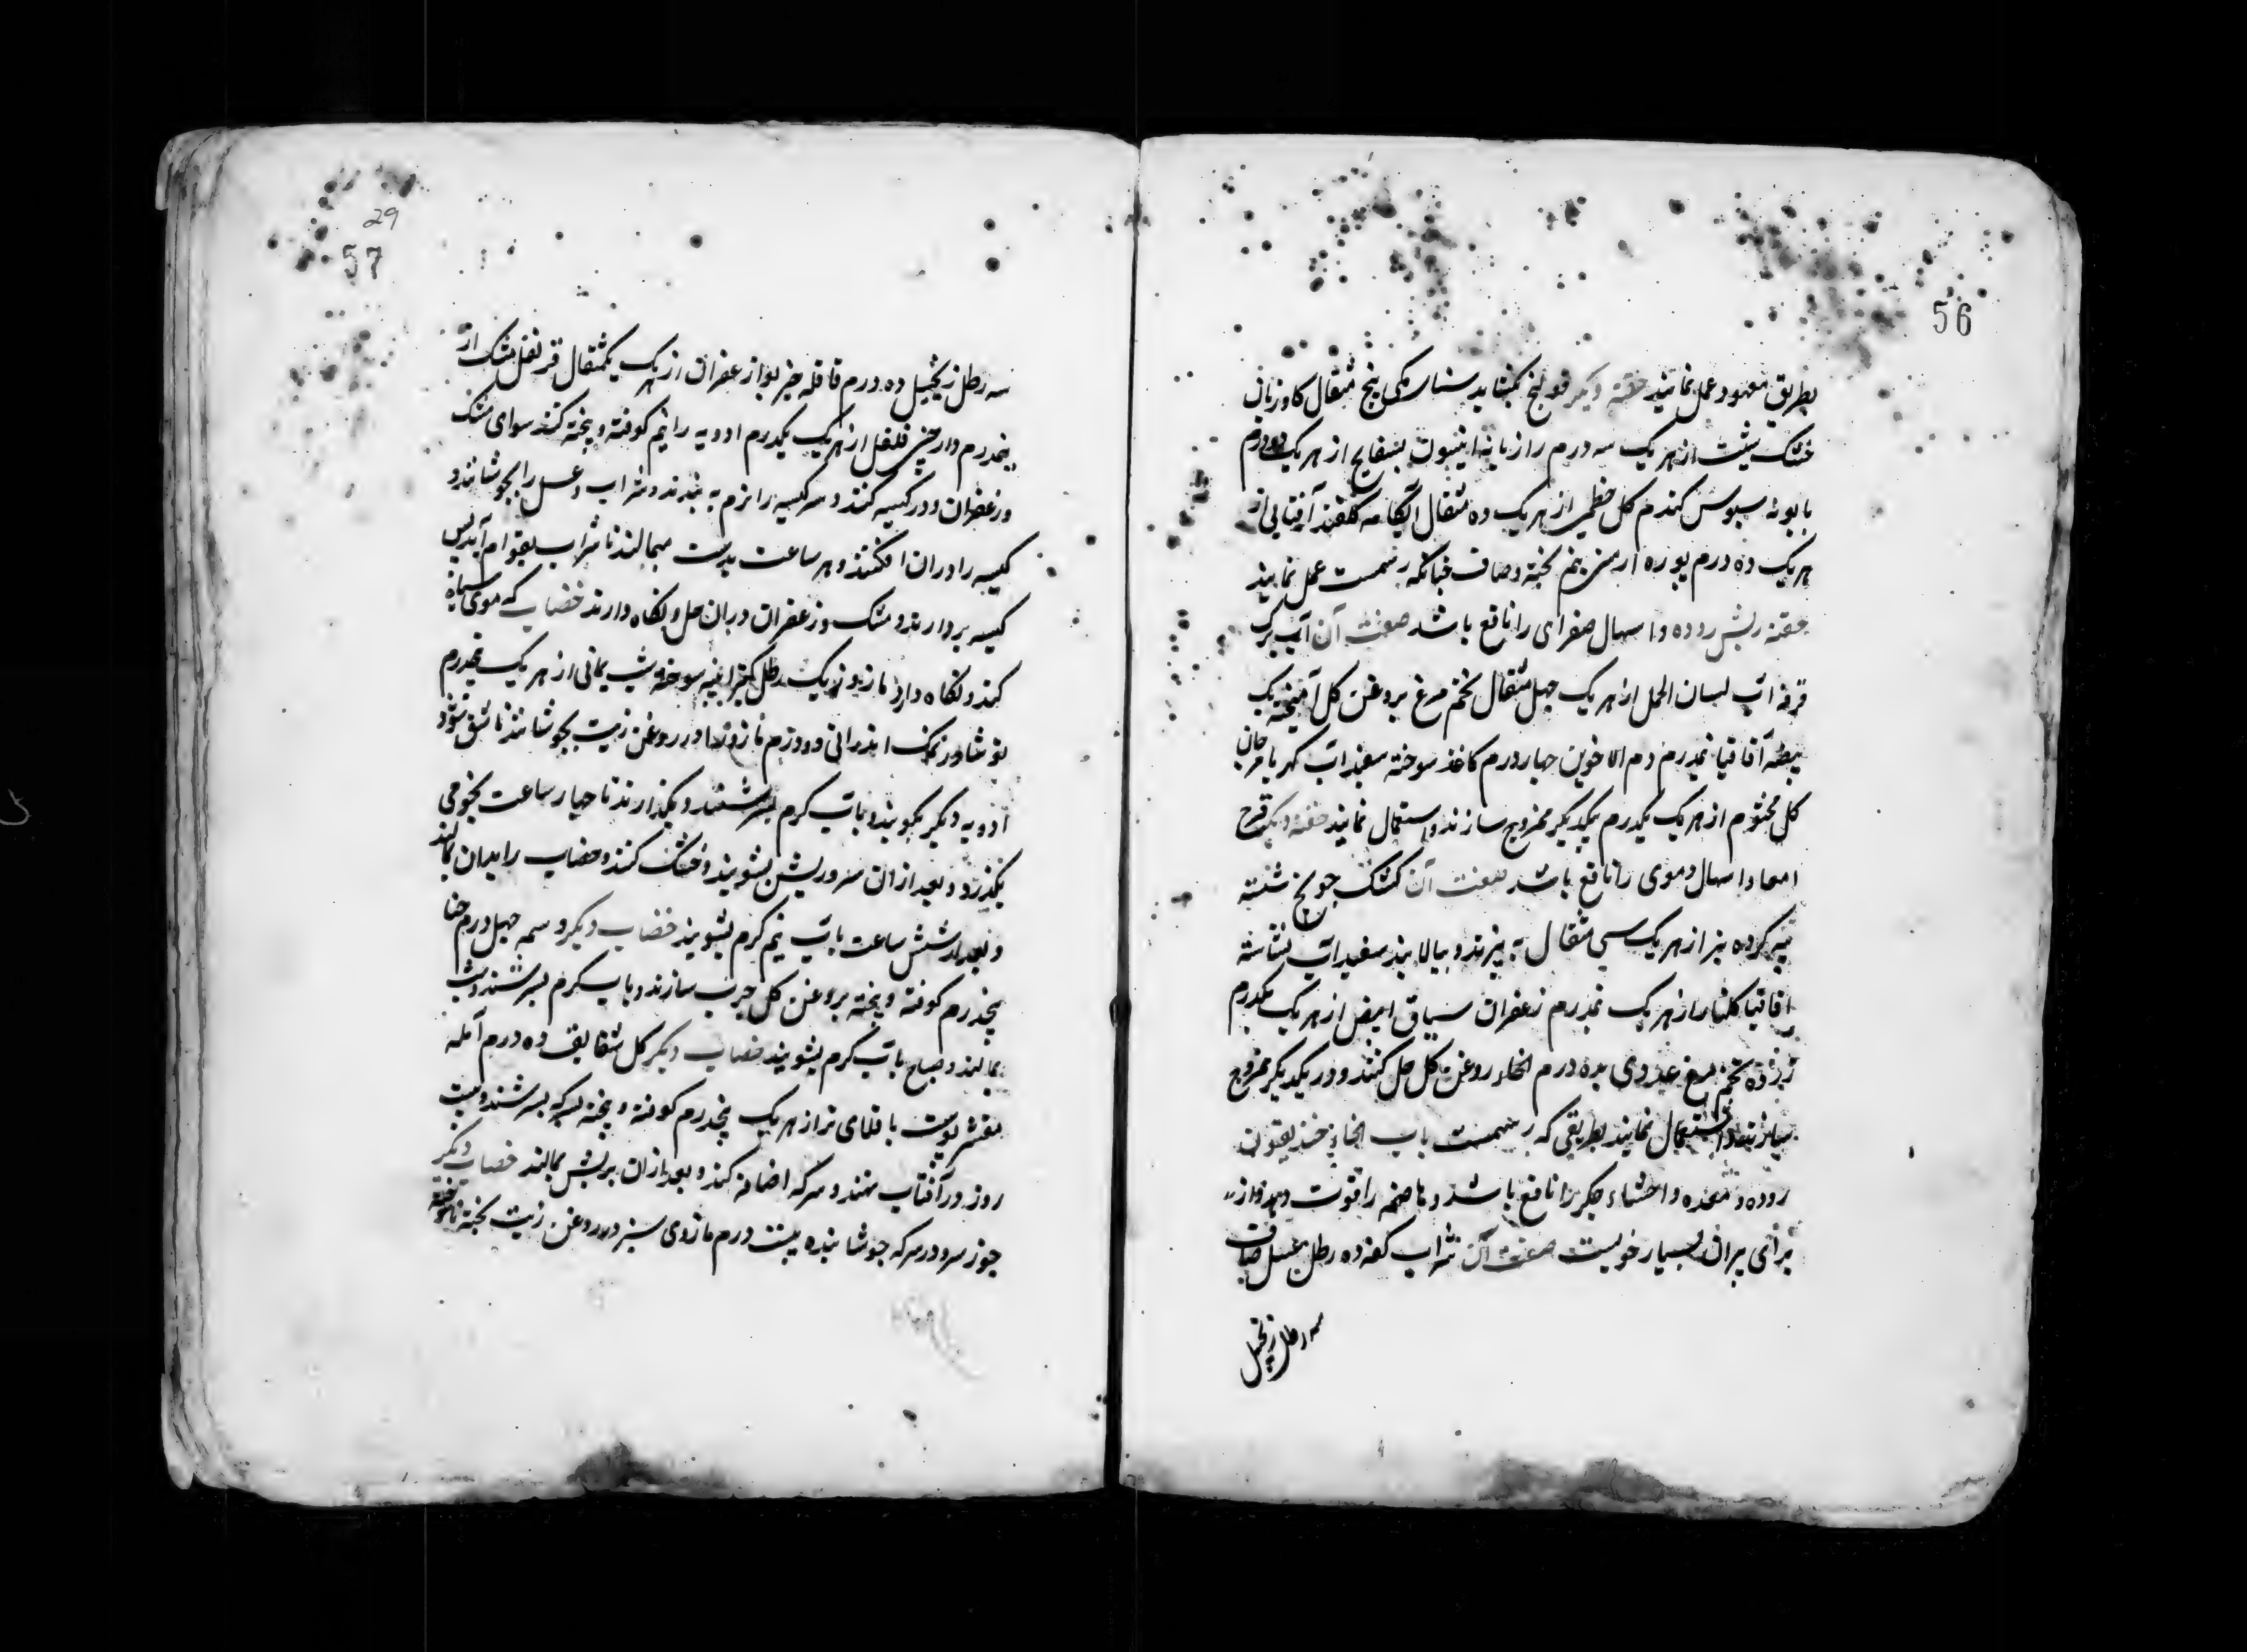 56
بطریق معهود عمل نمایند حقنه دیگر قولنج بگشاید سنا مکی پنج مثقال کاوزبان
خشک شبت از هر یک سه درم رازیانه انیسون بسفایج از هر یک دو درم
بابونه سبوس کندم کل خطمی از هر یک ده مثقال آبکامه کلقند آفتابی از
هر یک ده درم بوره ارمنی نیم پخته و صاف چنانکه رسمست عمل نمایند
حقنه ریش روده و اسهال صفرای را نافع باشد صفت آن آب برک
خرفه آب لسان الحمل از هر یک چهل مثقال تخم مرغ بروغن کل آمیخته یک
بیضه آقاقیا نیمدرم دم الاخوین چهار درم کاغذ سوخته سفیداب کهربا مرجان
کل مختوم از هر یک یکدرم بیکدیگر ممزوج سازند و استعمال نمایند حقنه دیگر قرح
امعا و اسهال دموی را نافع باشد صفت آن کشک جو برنج شسته
پیه کرده بز از هر یک سی مثقال به پزند و بپالایند سفیداب نشاسته
اقاقیا کلنار از هر یک نیمدرم زعفران سیاق ابیض از هر یک یکدرم
زرده تخم مرغ عددی بده درم روغن کل حل کنند و در یکدیگر ممزوج
سازند و استعمال نمایند بطریقی که رسمست باب الخاء خندیقون
روده و معده و احشاء جکر را نافع باشد و هاضمه را قوت دهد و از
برای پیران بسیار خوبست صفت آن شراب کهنه ده رطل عسل صاف
سه رطل زنجبیل
29
57
سه رطل زنجبیل ده درم قاقله خیربوا زعفران از هر یک یکمثقال قرنفل مشک از
نیمدرم دارچینی فلفل از هر یک یکدرم ادویه را نیم کوفته و پخته کنند سوای مشک
و زعفران و در کیسه کنند و سر کیسه را نرم به بندند و شراب و عسل را بجوشانند و
کیسه را در ان افکنند و هر ساعت بدست میمالند تا شراب بقوام آید پس
کیسه بردارند و مشک و زعفران دران حل و نگاه دارند خضاب که موی سیاه
کند و نگاه دارد مازو یک رطل کتیرا پنبه سوخته شب یمانی از هر یک نیمدرم
نوشادر نمک اندرانی دو درم مازو را در روغن زیت بجوشانند تا شق شود
ادویه دیگر بکوبند و بآب گرم بسرشند و بگذارند تا چهار ساعت نجومی
بگذرد و بعد ازان سر و ریش بشویند و خشک کنند و خضاب را بدان بمالند
و بعد از شش ساعت بآب نیم گرم بشویند خضاب دیگر وسمه چهل درم حنا
پنجدرم کوفته و پخته بروغن کل چرب سازند و بآب گرم بسرشند و شب
بمالند و صباح بآب گرم بشویند خضاب دیگر کل شقایق ده درم آمله
مقشر پوست باقلای تر از هر یک پنجدرم کوفته و پخته بسرکه بسرشند و بیست
روز در آفتاب نهند و سرکه اضافه کنند و بعد ازان بریش بمالند خضاب دیگر
جوز سرو در سرکه جوشانیده بیست درم مازوی سبز در روغن زیت پخته تا سوخته